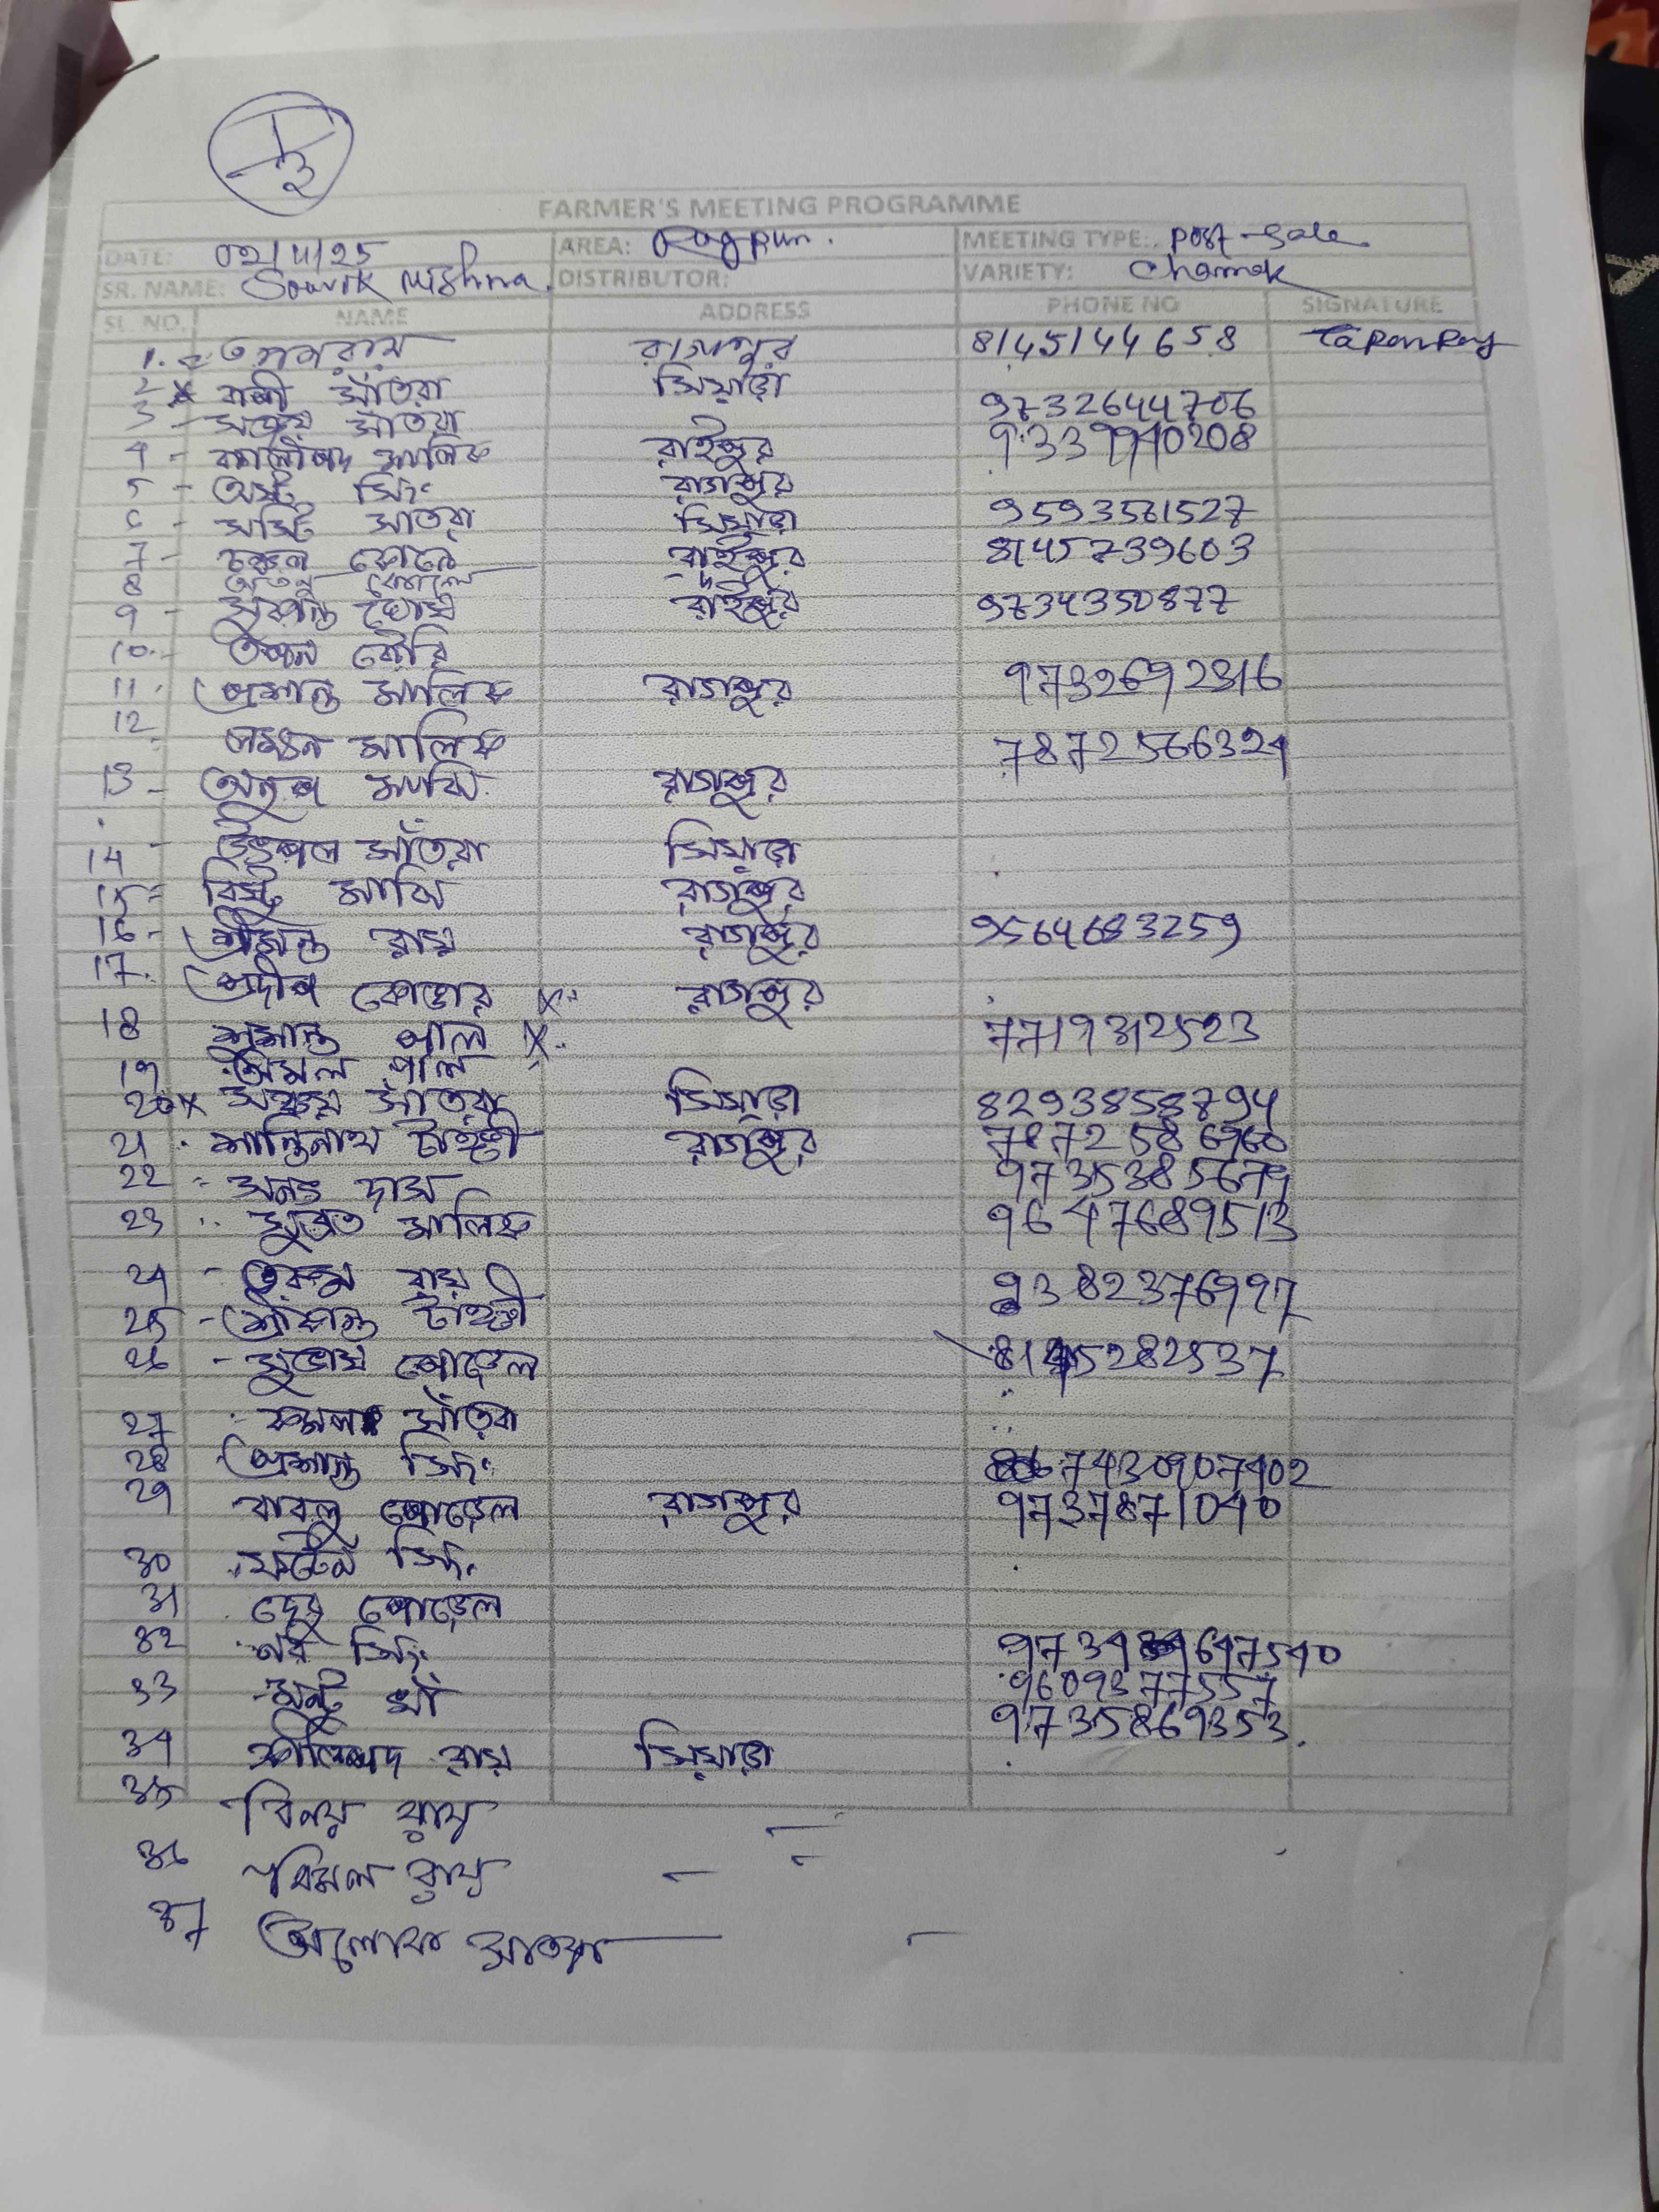 FARMER'S MEETING PROGRAMME
DATE: 02/11/25 AREA: Ragpur. MEETING TYPE: Post-Sale
SR. NAME: Souvik Mishra. DISTRIBUTOR: VARIETY: Chamak
SL. NO. NAME ADDRESS PHONE NO SIGNATURE
1. তপন রায় রাগপুর 8145144658 Tapan Roy
2 সাঁতরা সিয়াড়া
3 - সঞ্জয় সাঁতরা 9732644706
4 - কালীপদ মালিক রাইপুর 9339940208
5 - সিং রাগপুর
6 - ষষ্টি সাতরা সিয়াড়া 9593581527
7 - চঞ্চল কোলে রাইপুর 8145739603
8 অতনু কোলে
9 - সুকান্ত ঘোষ রাইপুর 9734350877
10. - তপন
11. প্রশান্ত মালিক রাগপুর 9732692316
12. লক্ষন মালিক 7872566324
13 - অনুপ মাঝি রাগপুর
14 - উৎপল সাঁতরা সিয়াড়া
15 - বিষ্টু মাঝি রাগপুর
16 - শ্রীমন্ত রায় রাগপুর 9564683259
17. প্রদীপ কোঙার x রাগপুর
18 সুশান্ত পাল x 7719312523
19 অমল পাল
20 x সঞ্জয় সাঁতরা সিয়াড়া 8293858794
21 শান্তিনাথ রাগপুর 7872586960
22 সনৎ দাস 9735385679
23 সুব্রত মালিক 9647689513
24 - তরুন রায় 9382376997
25 - শ্রীকান্ত
26 - সুভাষ পোড়েল 8145282537
27 কমল সাঁতরা
28 প্রশান্ত সিং 67430907402
29 বাবলু পোড়েল রাগপুর 9737871040
30 সিং
31 দেবু পোড়েল
32 সিং
33 মন্টু খাঁ 9609377557
9735869353.
34 কালিপদ রায় সিয়াড়া
35 বিনয় রায়
36 বিমল রায়
37 অলোক সাতরা